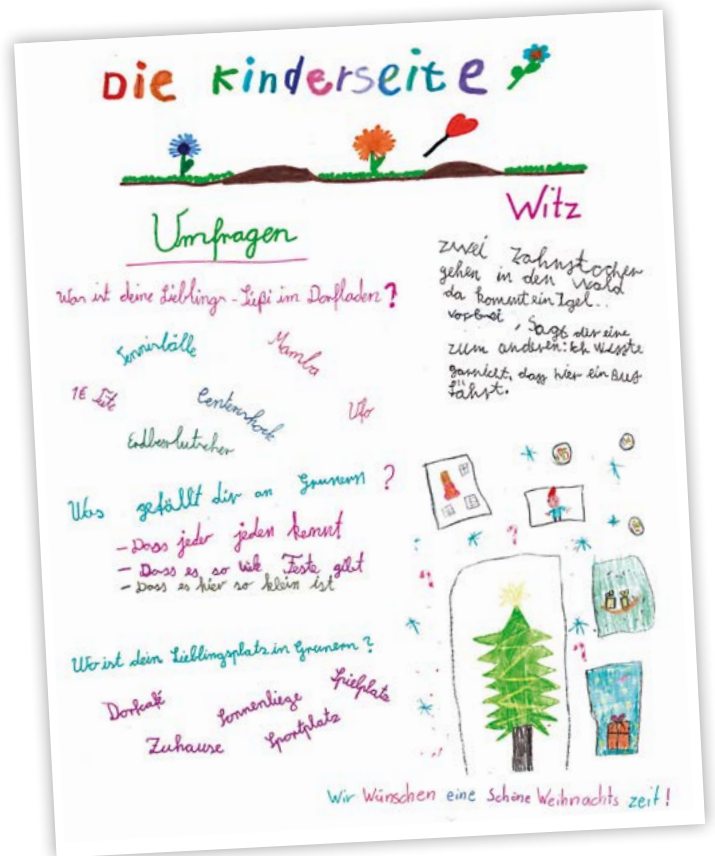 Die Kinderseite
Umfragen
Was ist deine Lieblings-Süßi im Dorfladen?
Tennisbälle
Mamba
1€ Tüte
Centershock
Ufo
Erdbeerlutscher
Was gefällt dir an Grunern?
- Dass jeder jeden kennt
- Dass es so viele Feste gibt
- Dass es hier so klein ist
Wo ist dein Lieblingsplatz in Grunern?
Dorfcafé
Sonnenliege
Spielplatz
Zuhause
Sportplatz
Witz
zwei Zahnstocher
gehen in den Wald
da kommt ein Igel..
vorbei, Sagt der eine
zum anderen: Ich wusste
garnicht, dass hier ein Bus
fährt.
Wir Wünschen eine Schöne Weihnachts zeit!